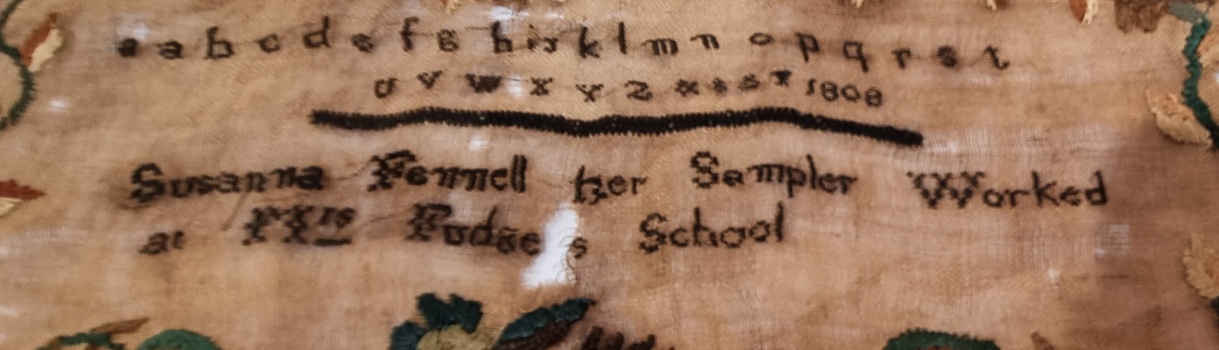 a a b c d e f g h i k l m n o p q r s t
u v w x y z 1808
Susanna Fennell her Sampler Worked
at School